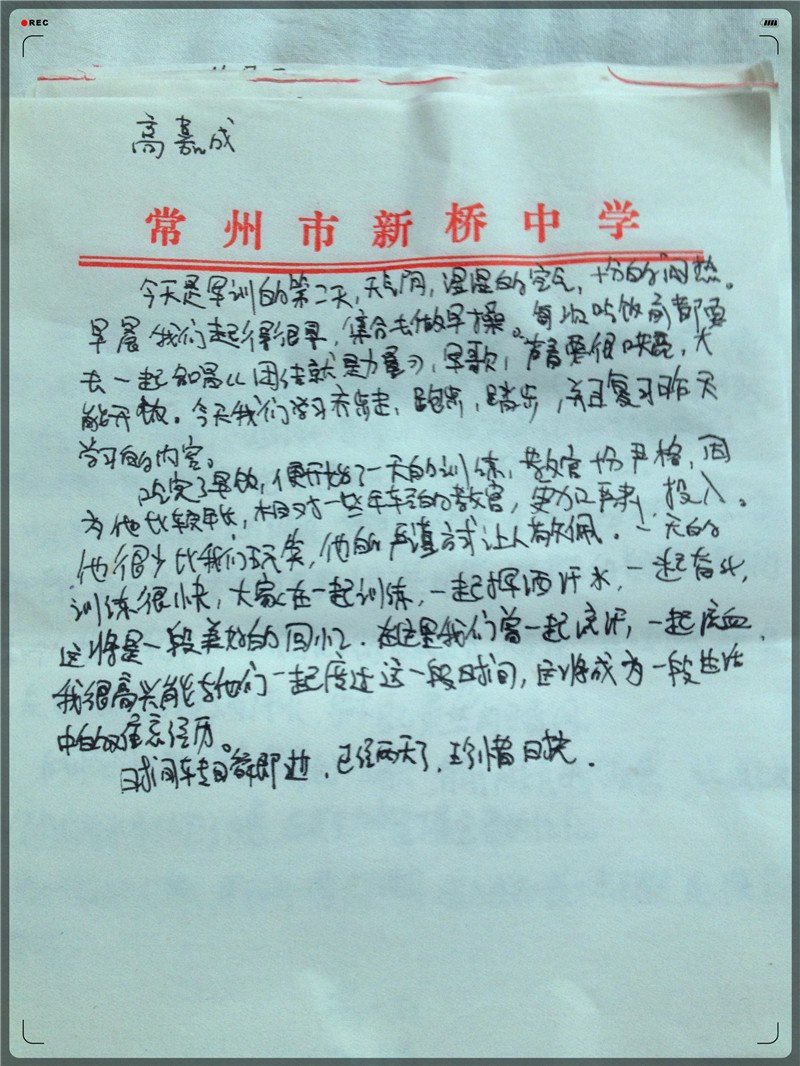 REC
高嘉成
常州市新桥中学
今天是军训的第二天,天气阴,湿湿的空气,十份的闷热。
早晨我们起得很早,集合去做早操。每次吃饭前都要
去一起唱高《团结就是力量》,军歌,声音要很响亮,才
能开饭。今天我们学习齐步走,跑步,踏步,并且复习昨天
学习的内容。
吃完了早饭,便开始了一天的训练,教官十份严格,因
为他比较年长,相对一些年轻的教官,更加严肃,投入。
他很少比我们玩笑,他的严谨方式让人敬佩。一天的
训练很快,大家在一起训练,一起挥洒汗水,一起奋斗,
这将是一段美好的回忆。在这是我们曾一起流汗,一起流血,
我很高兴能与他们一起度过这一段时间,这将成为一段生活
中的难忘经历。
时间转眼即逝,已经两天了,珍惜